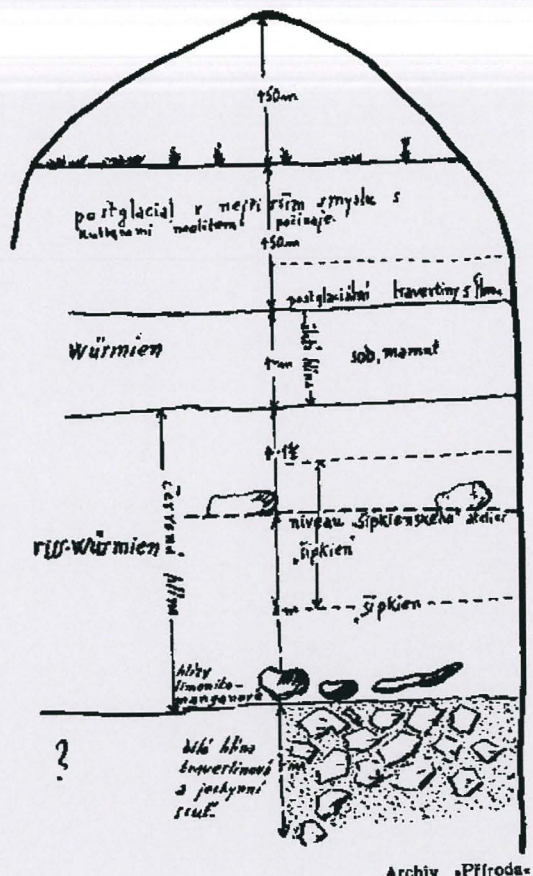 450m
postglaciál v nejširším smyslu s
kulturami neolitem počínaje.
450m
postglaciální travertiny s flmi
Würmien
žlutá hlína
sob, mamut
červená hlína
niveau „šipkienského“ atelier
riss-Würmien
„šipkien“
„šipkien
m
hlízy
limonito-
manganové
?
bílá hlína
travertinová
a jeskynní
suť.
m
Archiv „Příroda“